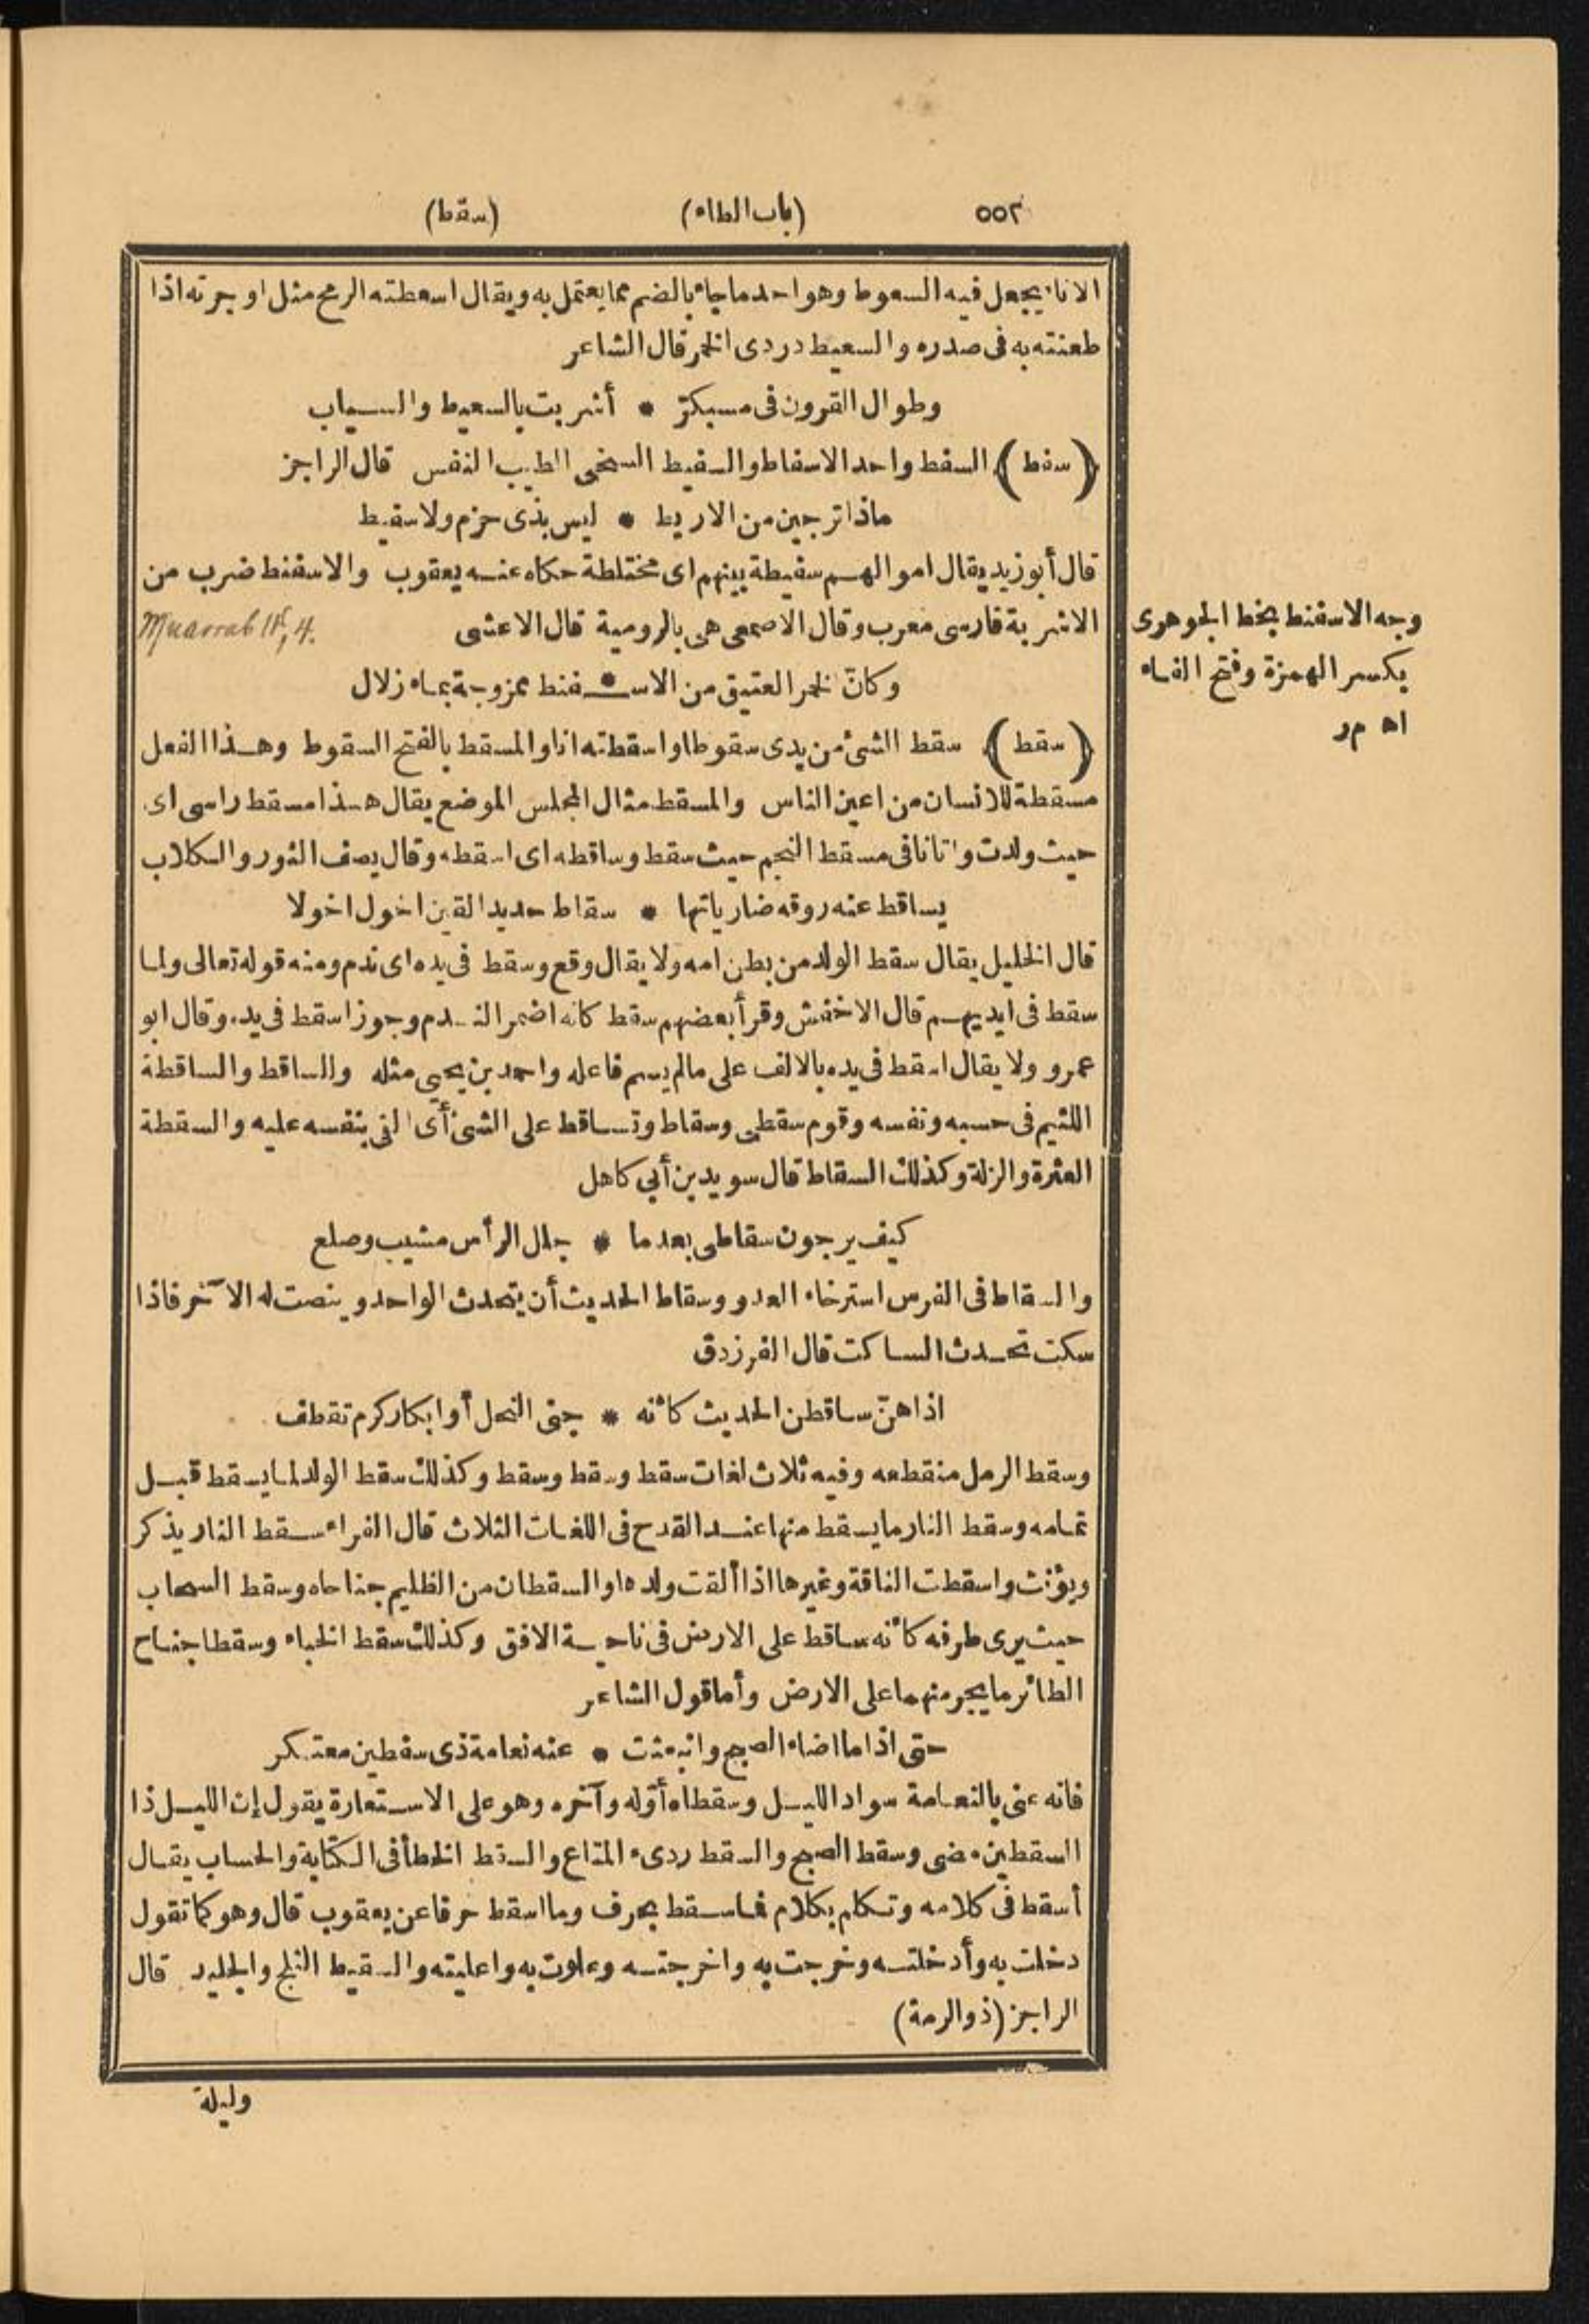 ٥٥٢ (باب الطاء) (سقط)
الاناء يجعل فيه السعوط وهو احد ما جاء بالضم مما يعتمل به ويقال اسعطته الرمح مثل اوجرته اذا
طعنته به فى صدره والسعيط دردى الخمر قال الشاعر
وطوال القرون فى مسبكرّ * أشربت بالسعيط والسياب
(سفط) السفط واحد الاسفاط والسفيط السخى الطيب النفس قال الراجز
ماذا ترجين من الاريط * ليس بذى حزم ولا سفيط
قال أبو زيد يقال اموالهم سفيطة بينهم اى مختلطة حكاه عنه يعقوب والاسفنط ضرب من
الاشربة فارسى معرب وقال الاصمعى هى بالرومية قال الاعشى
Muarrab 18, 4.
وجه الاسفنط بخط الجوهرى
بكسر الهمزة وفتح الفاء
اه م ر
وكانّ الخمر العتيق من الاسـ*ـفنط ممزوجة بماء زلال
(سقط) سقط الشئ من يدى سقوطا واسقطته انا والمسقط بالفتح السقوط وهذا الفعل
مسقطة للانسان من اعين الناس والمسقط مثال المجلس الموضع يقال هذا مسقط راسى اى
حيث ولدت واتانا فى مسقط النجم حيث سقط وساقطه اى اسقطه وقال يصف الثور والكلاب
يساقط عنه روقه ضارياتها * سقاط حديد القين اخول اخولا
قال الخليل يقال سقط الولد من بطن امه ولا يقال وقع وسقط فى يده اى ندم ومنه قوله تعالى ولما
سقط فى ايديهم قال الاخفش وقرأ بعضهم سقط كانه اضمر الندم وجوز اسقط فى يده وقال ابو
عمرو ولا يقال اسقط فى يده بالالف على مالم يسم فاعله واحمد بن يحيى مثله والساقط والساقطة
اللئيم فى حسبه ونفسه وقوم سقطى وسقاط وتساقط على الشئ أى القى بنفسه عليه والسقطة
العثرة والزلة وكذلك السقاط قال سويد بن أبي كاهل
كيف يرجون سقاطى بعد ما * جلل الرأس مشيب وصلع
والسقاط فى الفرس استرخاء العدو وسقاط الحديث أن يتحدث الواحد وينصت له الآخر فاذا
سكت تحدث الساكت قال الفرزدق
اذا هنّ ساقطن الحديث كأنه * جنى النحل أو ابكار كرم تقطف
وسقط الرمل منقطعه وفيه ثلاث لغات سقط وسقط وسقط وكذلك سقط الولد لما يسقط قبل
تمامه وسقط النار ما يسقط منها عند القدح فى اللغات الثلاث قال الفراء سقط النار يذكر
ويؤنث واسقطت الناقة وغيرها اذا ألقت ولدها والسقطان من الظليم جناحاه وسقط السحاب
حيث يرى طرفه كأنه ساقط على الارض فى ناحية الافق وكذلك سقط الخباء وسقطا جناح
الطائر ما يجر منهما على الارض وأما قول الشاعر
حتى اذا ما اضاء الصبح وانبعثت * عنه نعامة ذى سقطين معتكر
فانه عنى بالنعامة سواد الليل وسقطاه أوّله وآخره وهو على الاستعارة يقول إن الليل ذا
السقطين مضى وسقط الصبح والسقط ردىء المتاع والسقط الخطأ فى الكتابة والحساب يقال
أسقط فى كلامه وتكلم بكلام فما سقط بحرف وما اسقط حرفا عن يعقوب قال وهو كما تقول
دخلت به وأدخلته وخرجت به واخرجته وعلوت به واعليته والسقيط الثلج والجليد قال
الراجز (ذو الرمة)
وليلة